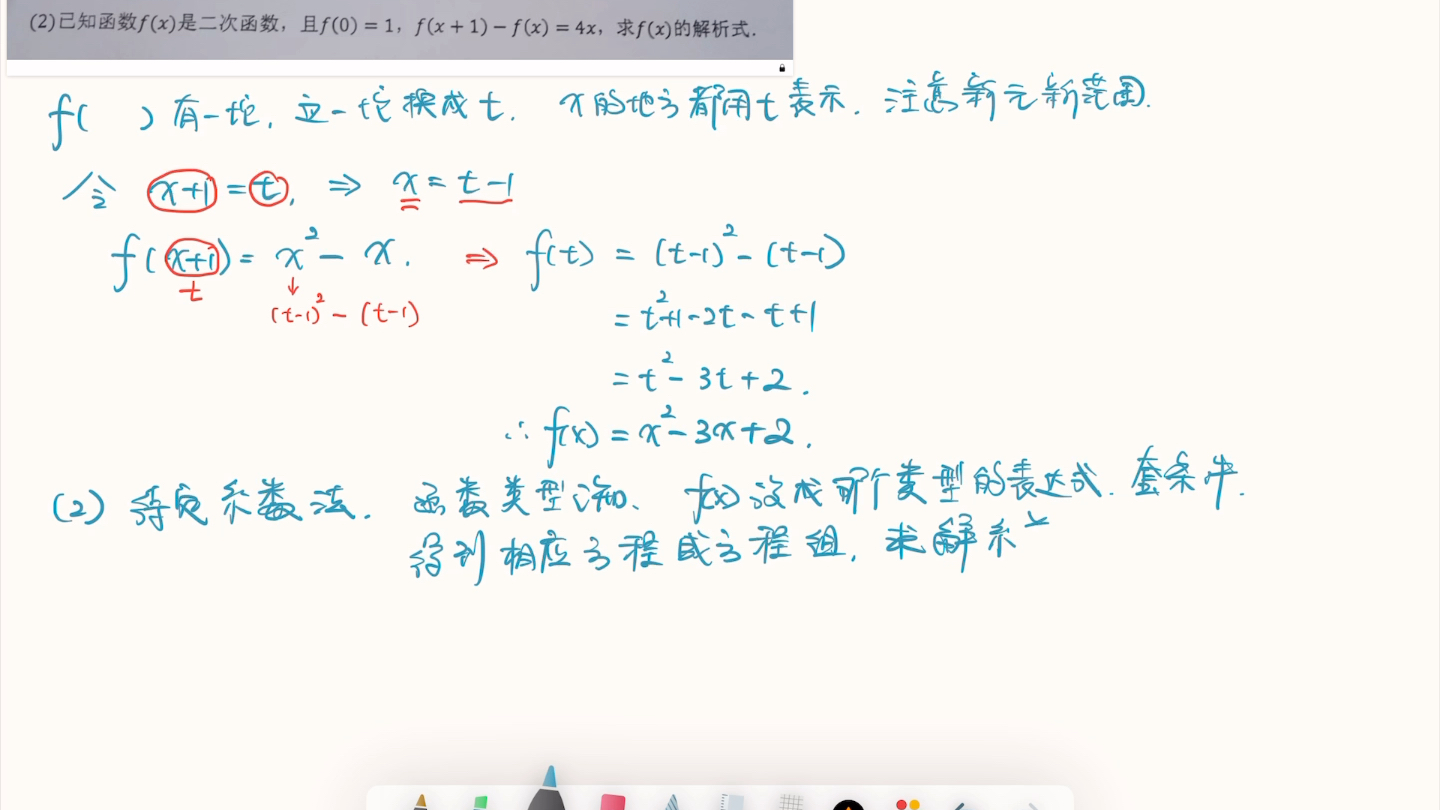 (2)已知函数f(x)是二次函数，且f(0) = 1，f(x + 1) − f(x) = 4x，求f(x)的解析式.
f( ) 有一坨, 这一坨换成 t. x 的地方都用 t 表示. 注意新元新范围.
令 x+1 = t, ⇒ x = t-1
f(x+1) = x² - x. ⇒ f(t) = (t-1)² - (t-1)
t (t-1)² - (t-1)
= t²+1-2t-t+1
= t²-3t+2.
∴ f(x) = x²-3x+2.
(2) 待定系数法. 函数类型已知、f(x) 设成那个类型的表达式. 套条件.
得到相应方程或方程组, 求解系